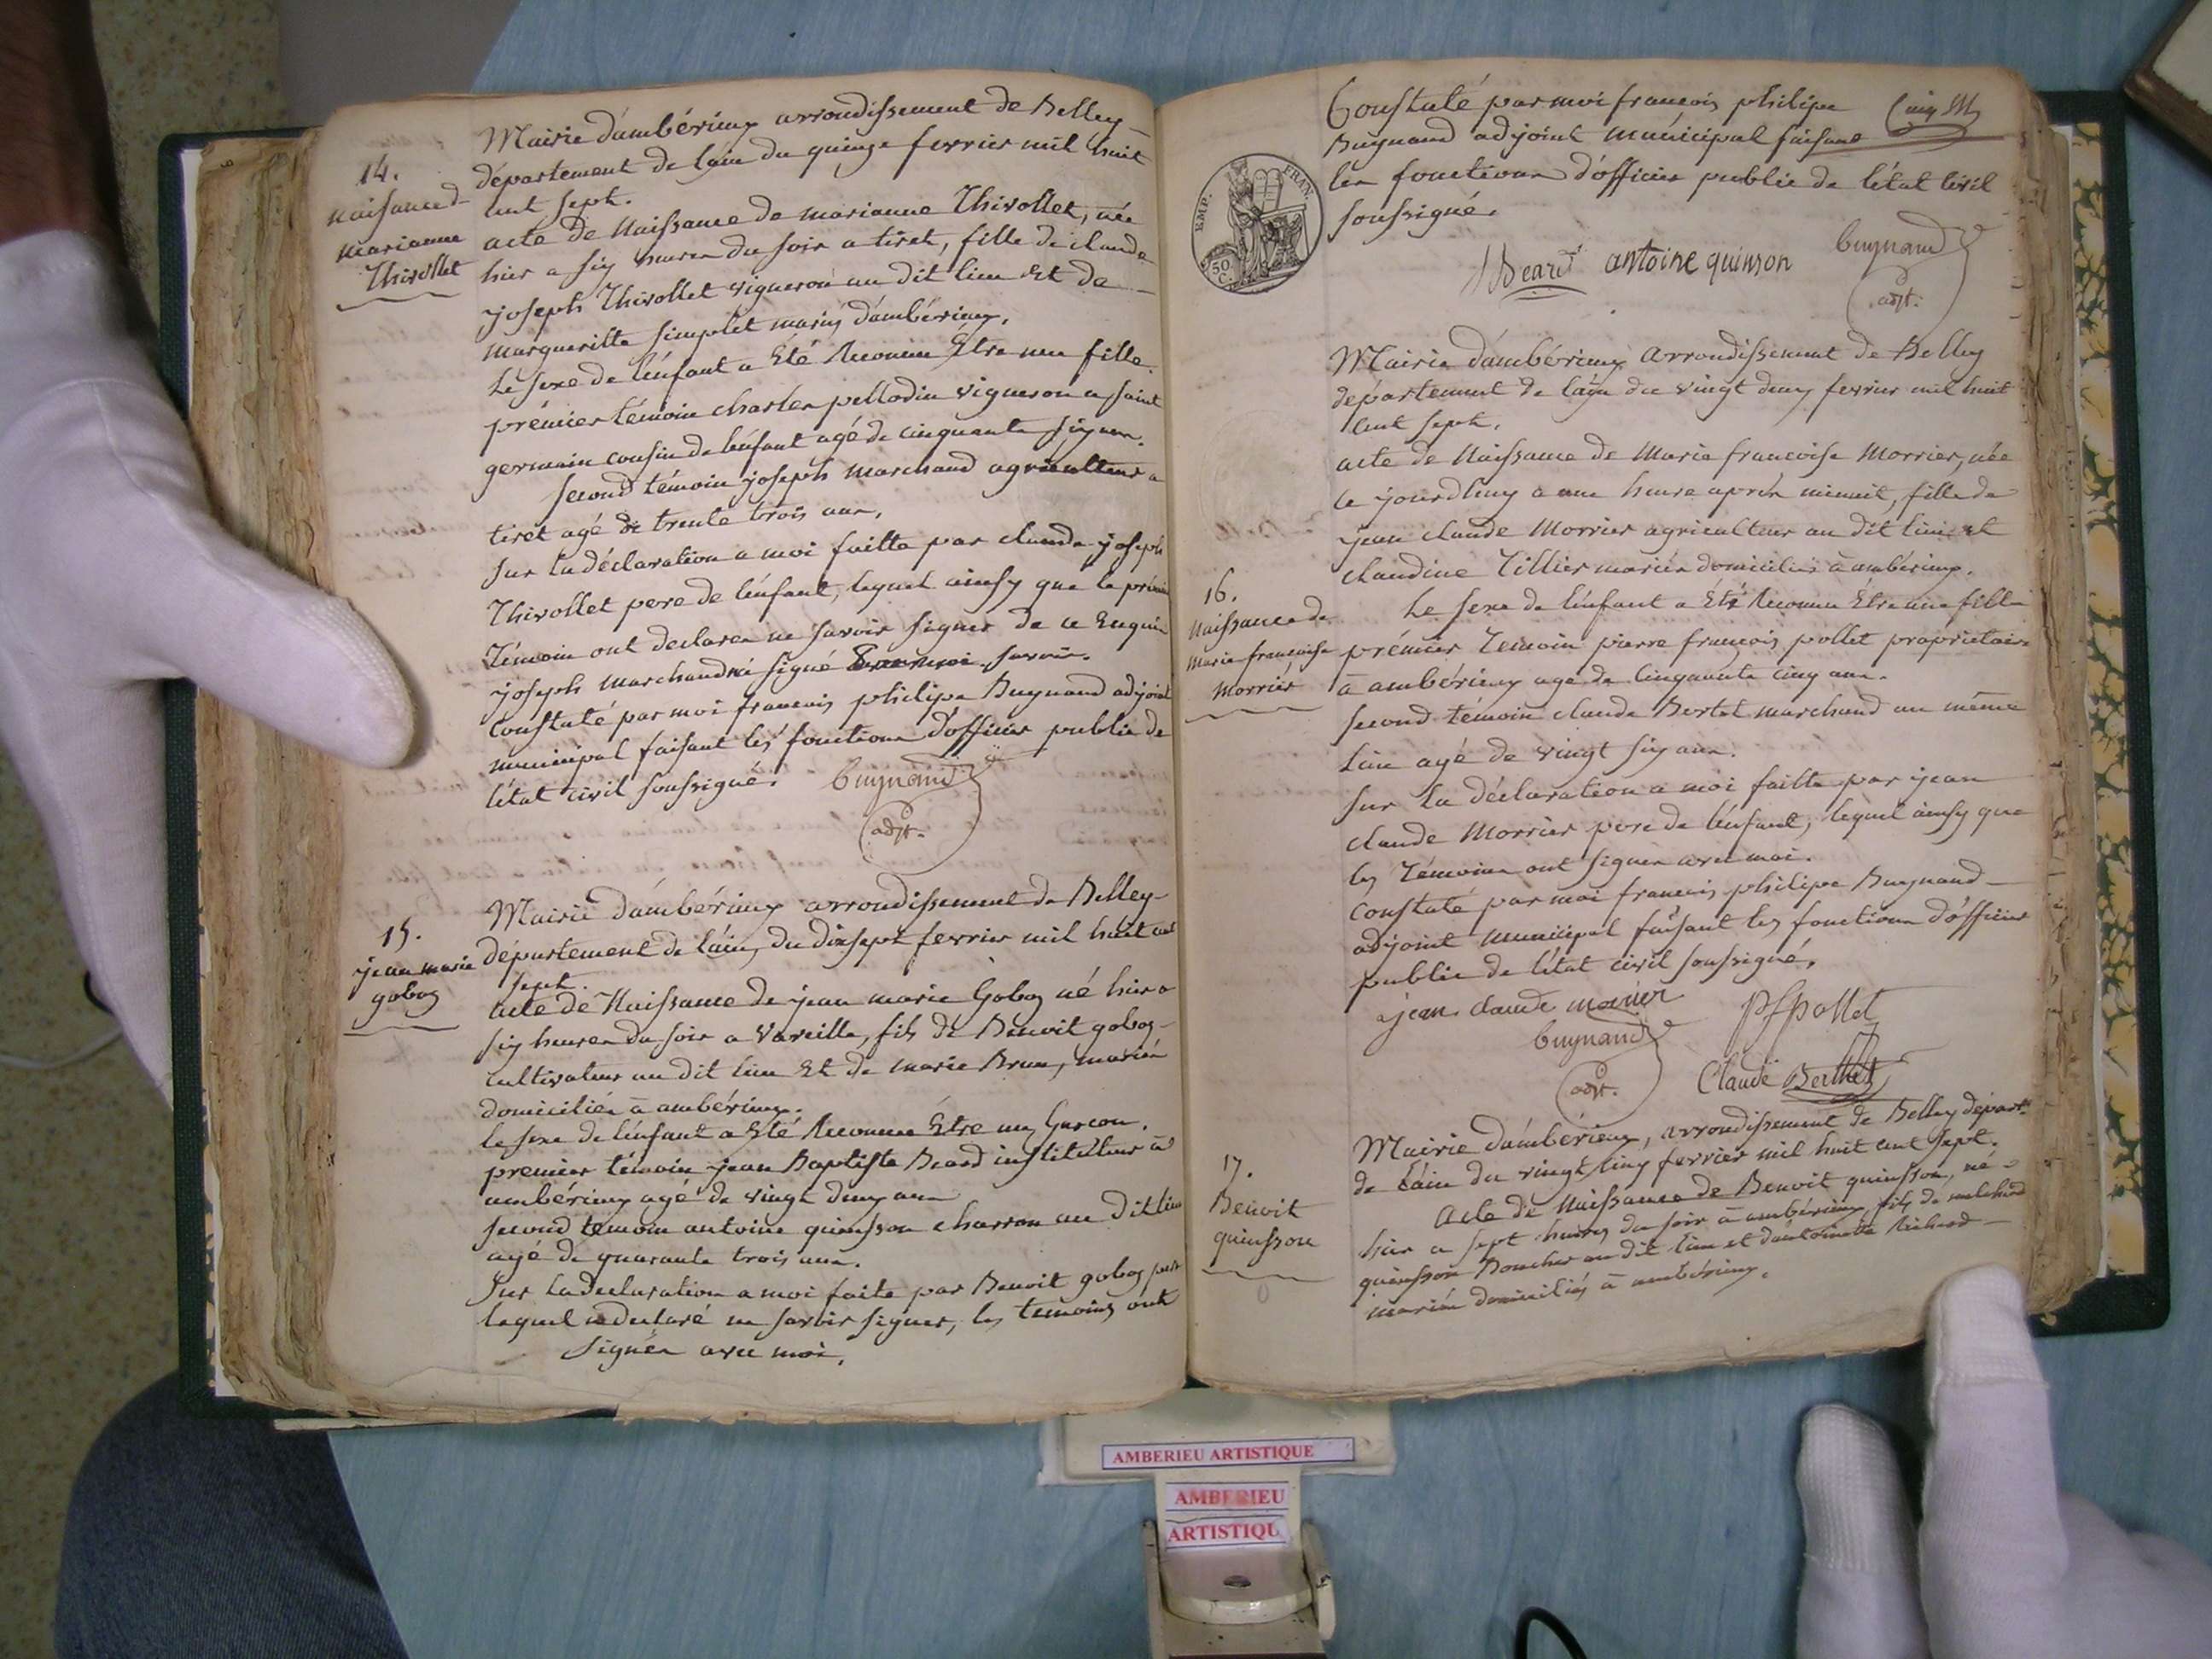 14.
naissance de
marianne
Thivollet
Mairie d'ambérieux arrondissement de Belley
département de l'ain du quinze fevrier mil huit
cent sept.
acte de Naissance de marianne Thivollet, née
hier a six heures du soir a tiret, fille de claude
joseph Thivollet vigneron au dit lieu Et de
margueritte simplet mariés d'ambérieux.
Le sexe de l'enfant a Eté Reconnu Etre une fille.
prémier témoin charles pellodin vigneron a saint
germain cousin de l'enfant agé de cinquante six ans.
second témoin joseph marchand agriculteur a
tiret agé de trente trois ans.
Sur la déclaration a moi faitte par claude joseph
Thivollet pere de l'enfant, lequel ainsy que le prémier
Témoin ont declarer ne savoir signer de ce Enquis
joseph marchand n'a signé savoir.
Constaté par moi francois philipe Bugnand adjoint
municipal faisant les fonctions d'officier public de
l'état civil soussigné.
bugnand
adjt.
15.
jean marie
goboz
Mairie d'ambérieux arrondissement de Belley
département de l'ain, du dixsept fevrier mil huit cent
sept.
acte de Naissance de jean marie Goboz né hier a
six heures du soir a Vareille, fils de Benoit goboz
cultivateur au dit lieu Et de marie Brun, mariés
domiciliés à ambérieux.
le sexe de l'enfant a Eté Reconnu Etre un Garcon.
premier témoin jean Baptiste Beard instituteur à
ambérieux agé de vingt deux ans
second temoin antoine quinsson charron au dit lieu
agé de quarante trois ans.
Sur la declaration a moi faite par Benoit goboz pere
lequel a declaré ne savoir signer, les temoins ont
signés avec moi.
Constaté par moi françois philipe
Bugnand adjoint municipal faisant
les fonctions d'officier public de l'état civil
soussigné.
EMP. FRAN.
50 C.
Beard antoine quinson bugnand
adjt.
16.
Naissance de
Marie francoise
Morrier
Mairie d'ambérieux arrondissement de Belley
département de l'ain du vingt deux fevrier mil huit
cent sept.
acte de Naissance de Marie francoise Morrier, née
ce jourdhuy a une heure après minuit, fille de
jean claude Morrier agriculteur au dit lieu et
claudine Tillier mariés domiciliés à ambérieux.
Le sexe de l'enfant a Eté Reconnu Etre une fille
prémier Temoin pierre francois pollet proprietaire
à ambérieux agé de Cinquante cinq ans.
second témoin claude Bertet marchand au même
Lieu agé de vingt six ans.
sur la déclaration a moi faitte par jean
claude Morrier pere de l'enfant, lequel ainsy que
les Témoins ont signer avec moi.
Constaté par moi francois philipe Bugnand
adjoint municipal faisant les fonctions d'officier
public de l'état civil soussigné.
jean claude morier PfPollet
bugnand
adjt. Claude Berthet
17.
Benoit
quinsson
Mairie d'ambérieux, arrondissement de Belley départ.t
de l'ain du vingt cinq fevrier mil huit cent sept.
acte de Naissance de Benoit quinsson, né
hier a sept heures du soir à ambérieux fils de melchiord
quinsson Boucher au dit lieu et d'antoinette Richard
mariés domiciliés à ambérieux.
AMBERIEU ARTISTIQUE
AMBERIEU
ARTISTIQU